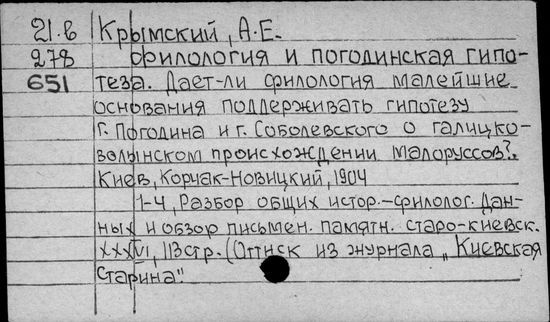 21.б Крымский, А.Е.
278 Филология и погодинская гипо-
651 теза. Дает-ли филология малейшие
основания поддерживать гипотезу
г. Погодина и г. Соболевского о галицко-
волынском происхождении малоруссов?.
Киев, Корчак-Новицкий, 1904
1-4, Разбор общих истор.-филолог. дан-
ных и обзор письмен. памятн. старо-киевск.
XXXVI, 113стр. (Оттиск из журнала „Киевская
Старина"